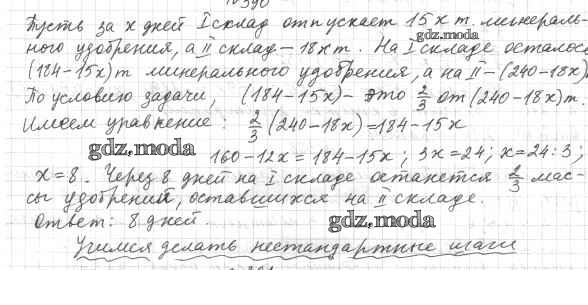 №390
Пусть за x дней I склад отпускает 15x т. минераль-
gdz.moda
ного удобрения, а II склад – 18x т. На I складе осталос
(184-15x) т минерального удобрения, а на II – (240-18x)
По условию задачи, (184-15x) – это 2/3 от (240-18x) т.
Имеем уравнение: 2/3 (240-18x) = 184-15x
gdz.moda
160-12x = 184-15x; 3x=24; x=24:3;
x=8. Через 8 дней на I складе останется 2/3 мас-
сы удобрений, оставшихся на II складе.
Ответ: 8 дней.
gdz.moda
Учимся делать нестандартные шаги